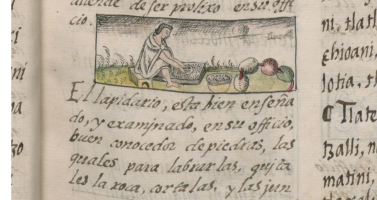 de ser prolixo en su offi
cio.
El lapidario, esta bien enseña
do, y examinado, en su officio,
buen conocedor de piedras, las
quales para labrarlas, quita
les la roca, cortalas, y las jun
ni, tlatl
lotia, tl
ȼ Tlate
tzalli, n
matini,